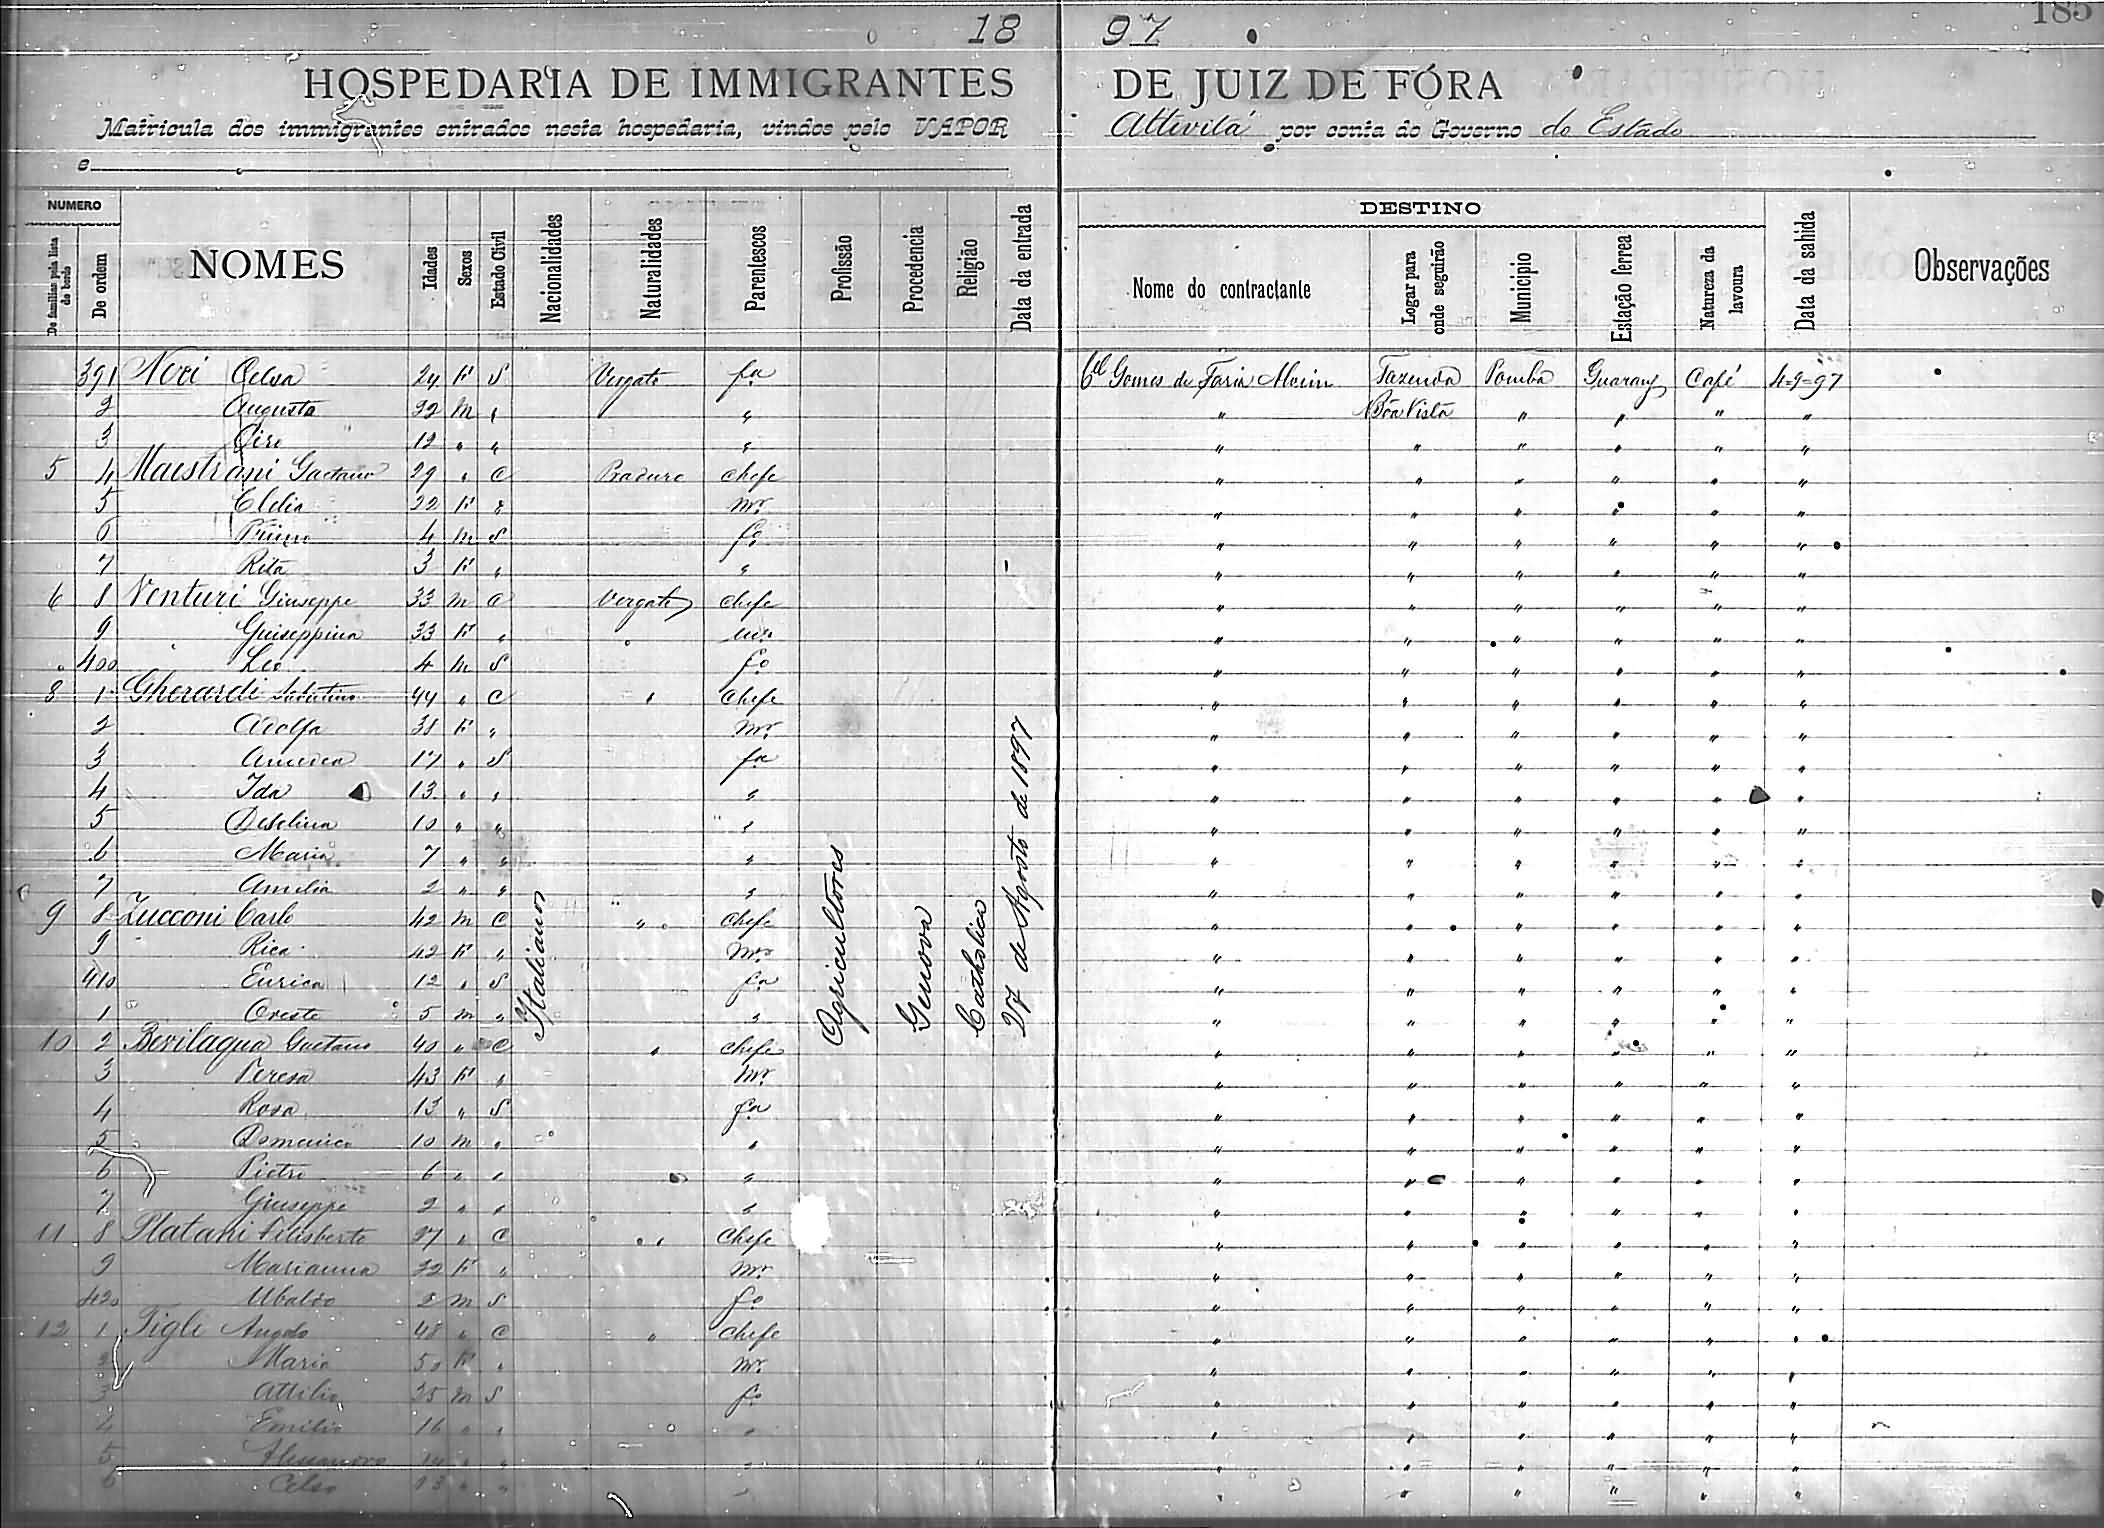 185
18 97
HOSPEDARIA DE IMMIGRANTES DE JUIZ DE FÓRA
Matricula dos immigrantes entrados nesta hospedaria, vindos pelo VAPOR Attivitá por conta do Governo do Estado
e
NUMERO DESTINO
De familias pela lista de bordo De ordem NOMES Idades Sexos Estado Civil Nacionalidades Naturalidades Parentescos Profissão Procedencia Religião Data da entrada Nome do contractante Logar para onde seguirão Municipio Estação ferrea Natureza da lavoura Data da sahida Observações
391 Neri 24 F S Vergato fa Cel Gomes de Faria Fazenda Pomba Guarany Café 4=9=97
2 Augusto 22 M " " " Bôa Vista " " " "
3 Ciro 12 " " " " " " " " "
5 4 Maestrani Gaetano 29 " C chefe " " " " " "
5 Clelia 22 F " mr " " " " " "
6 Primo 4 M S fo " " " " " "
7 Rita 3 F " " " " " " " "
6 8 Venturi Giuseppe 33 M C Vergato chefe " " " " " "
9 Guiseppina 33 F " " mr " " " " " "
" 400 Leo 4 M S fo " " " " " "
8 1 Gherardi Sabatino 44 " C " chefe " " " " " "
2 Adolfa 38 F " mr " " " " " "
3 17 " S fa " " " " " "
4 Ida 13 " " " " " " " " "
5 10 " " " " " " " " "
6 Maria 7 " " " " " " " " "
7 Amelia 2 " " " " " " " " "
9 8 Zucconi Carlo 42 M C " chefe " " " " " "
9 42 F " mr " " " " " "
410 Eurica 12 " S fa " " " " " "
1 Oreste 5 M " " " " " " " "
Italianos Agricultores Genova Catholica 27 de Agosto de 1897
10 2 Bevilaqua Gaetano 40 " C " chefe " " " " " "
3 Teresa 43 F " mr " " " " " "
4 Rosa 13 " S fa " " " " " "
5 Domenico 10 M " " " " " " " "
6 Pietro 6 " " " " " " " " "
7 Giuseppe 2 " " " " " " " " "
11 8 Platani Filisberto 27 " C " chefe " " " " " "
9 Marianna 32 F " mr " " " " " "
420 Ubaldo 2 M S fo " " " " " "
12 1 Angelo 48 " C " chefe " " " " " "
2 Maria 50 F " mr " " " " " "
3 Attilio 25 M S fo " " " " " "
4 Emilio 16 " " " " " " " " "
5 " " " " " " " " "
6 Celso 13 " " " " " " " " "